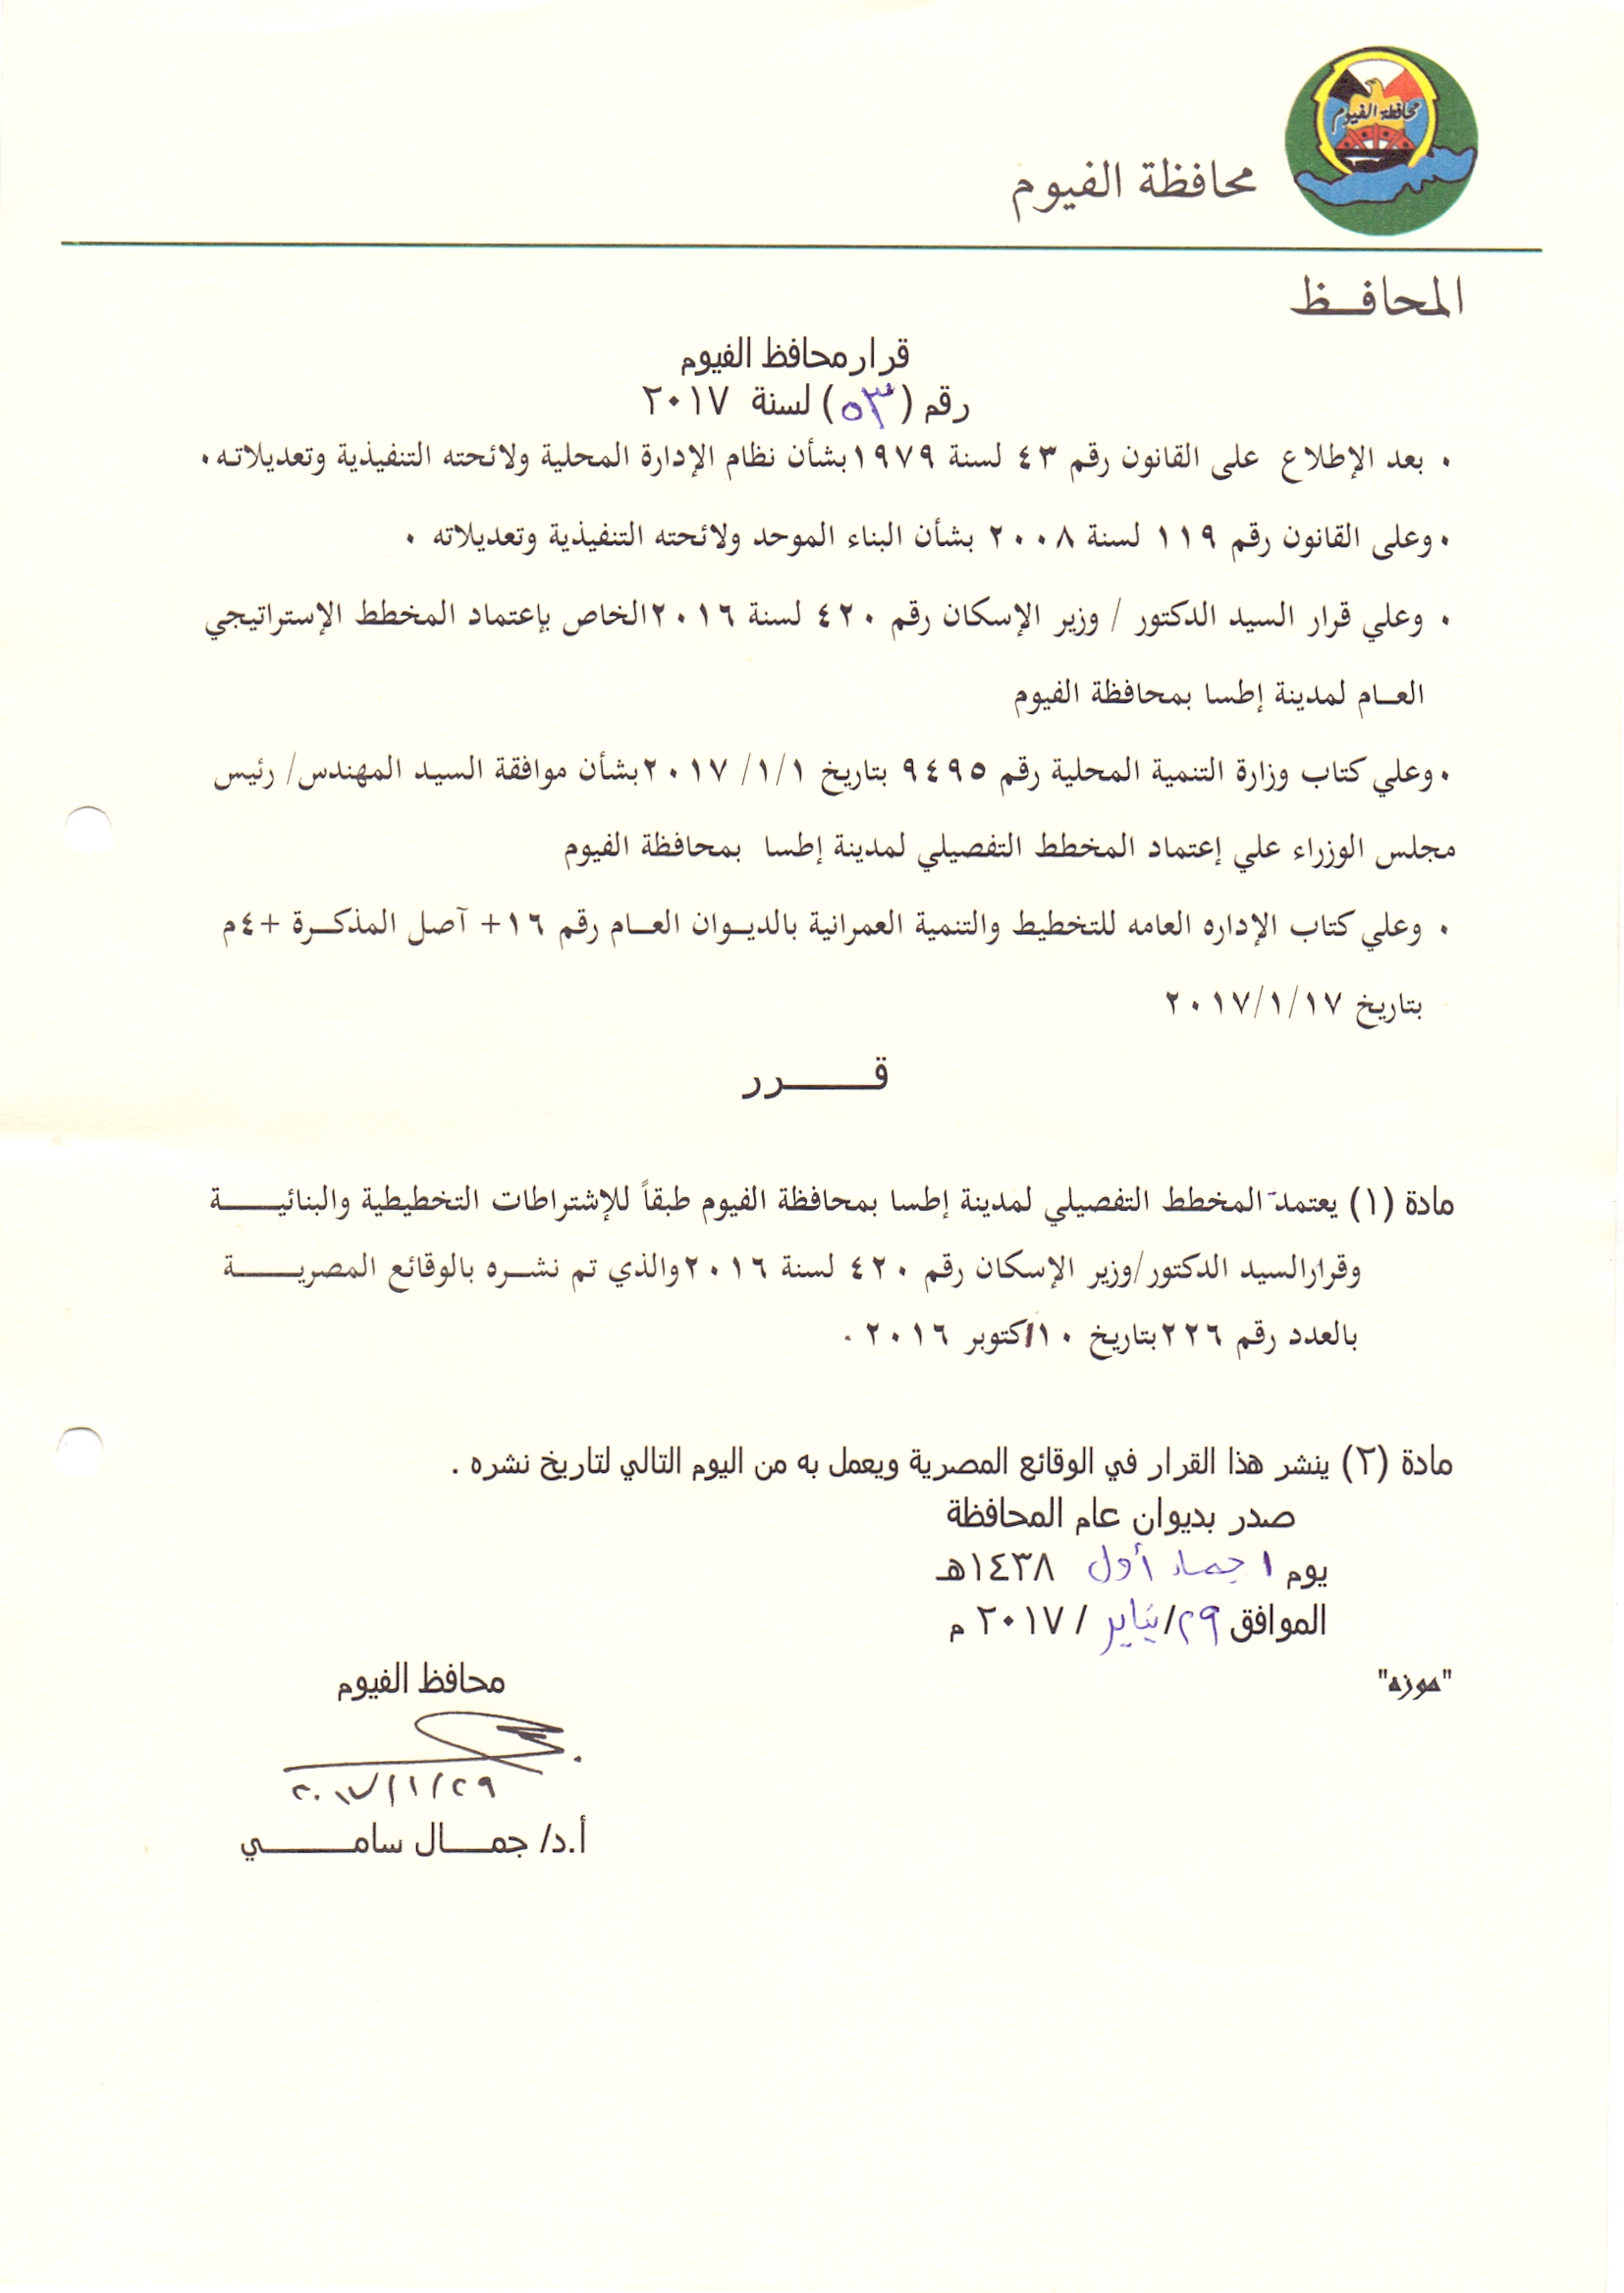 محافظة الفيوم
محافظة الفيوم
المحافــظ
قرار محافظ الفيوم
رقم (٥٣) لسنة ٢٠١٧
• بعد الإطلاع على القانون رقم ٤٣ لسنة ١٩٧٩ بشأن نظام الإدارة المحلية ولائحته التنفيذية وتعديلاتـه.
• وعلى القانون رقم ١١٩ لسنة ٢٠٠٨ بشأن البناء الموحد ولائحته التنفيذية وتعديلاته .
• وعلي قرار السيد الدكتور / وزير الإسكان رقم ٤٢٠ لسنة ٢٠١٦ الخاص بإعتماد المخطط الإستراتيجي
العــام لمدينة إطسا بمحافظة الفيوم
• وعلي كتاب وزارة التنمية المحلية رقم ٩٤٩٥ بتاريخ ١/١/ ٢٠١٧ بشأن موافقة السيد المهندس/ رئيس
مجلس الوزراء علي إعتماد المخطط التفصيلي لمدينة إطسا بمحافظة الفيوم
• وعلي كتاب الإداره العامه للتخطيط والتنمية العمرانية بالديــوان العــام رقم ١٦+ آصل المذكــرة +٤م
بتاريخ ٢٠١٧/١/١٧
قــــــرر
مادة (١) يعتمد المخطط التفصيلي لمدينة إطسا بمحافظة الفيوم طبقاً للإشتراطات التخطيطية والبنائيـــــة
وقرارالسيد الدكتور/وزير الإسكان رقم ٤٢٠ لسنة ٢٠١٦ والذي تم نشــره بالوقائع المصريـــــة
بالعدد رقم ٢٢٦ بتاريخ ١٠/اكتوبر ٢٠١٦ .
مادة (٢) ينشر هذا القرار في الوقائع المصرية ويعمل به من اليوم التالي لتاريخ نشره .
صدر بديوان عام المحافظة
يوم ١ جماد أول ١٤٣٨هـ
الموافق ٢٩/ يناير / ٢٠١٧ م
"موزه"
محافظ الفيوم
٢٠١٧/١/٢٩
أ.د/ جمــــال سامـــــــي